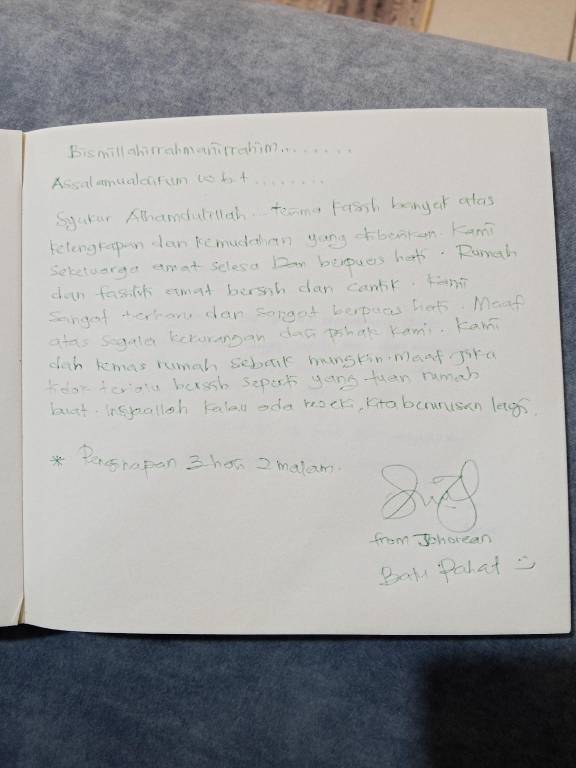 Bismillahirrahmanirrahim........
Assalamualaikum w.b.t........
Syukur Alhamdulillah.. terima kasih banyak atas
kelengkapan dan kemudahan yang diberikan. Kami
sekeluarga amat selesa Dan berpuas hati. Rumah
dan fasiliti amat bersih dan cantik. Kami
sangat terharu dan sangat berpuas hati. Maaf
atas segala kekurangan dari pihak kami. Kami
dah kemas rumah sebaik mungkin. Maaf jika
tidak terlalu bersih seperti yang tuan rumah
buat. Insyaallah kalau ada rezeki, kita berurusan lagi.
* Penginapan 3 hari 2 malam.
from Johorean
Batu Pahat :)